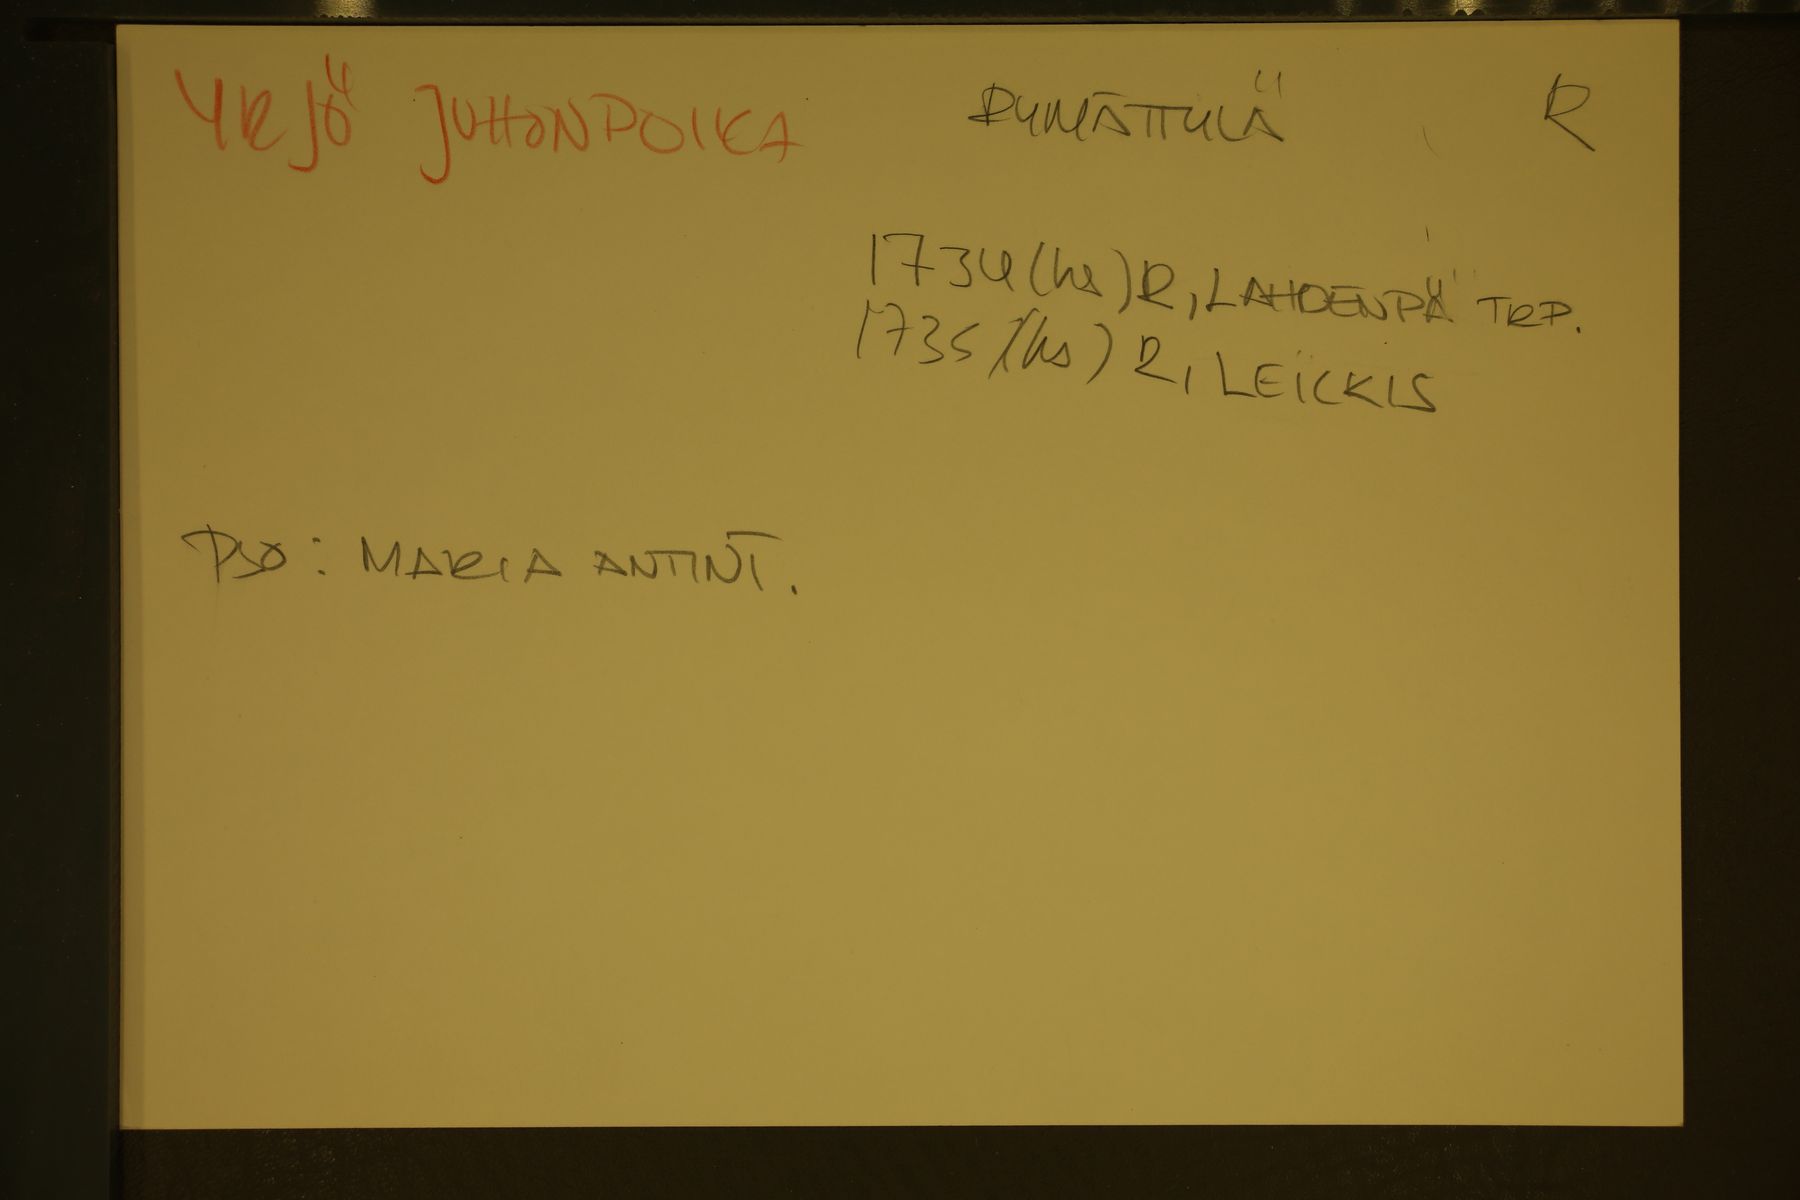 YRJÖ JUHONPOIKA RYMÄTTYLÄ R
1734 (hs) R, LAHDENPÄ TRP.
1735 (hs) R, LEICKIS
PSO: MARIA ANTINT.